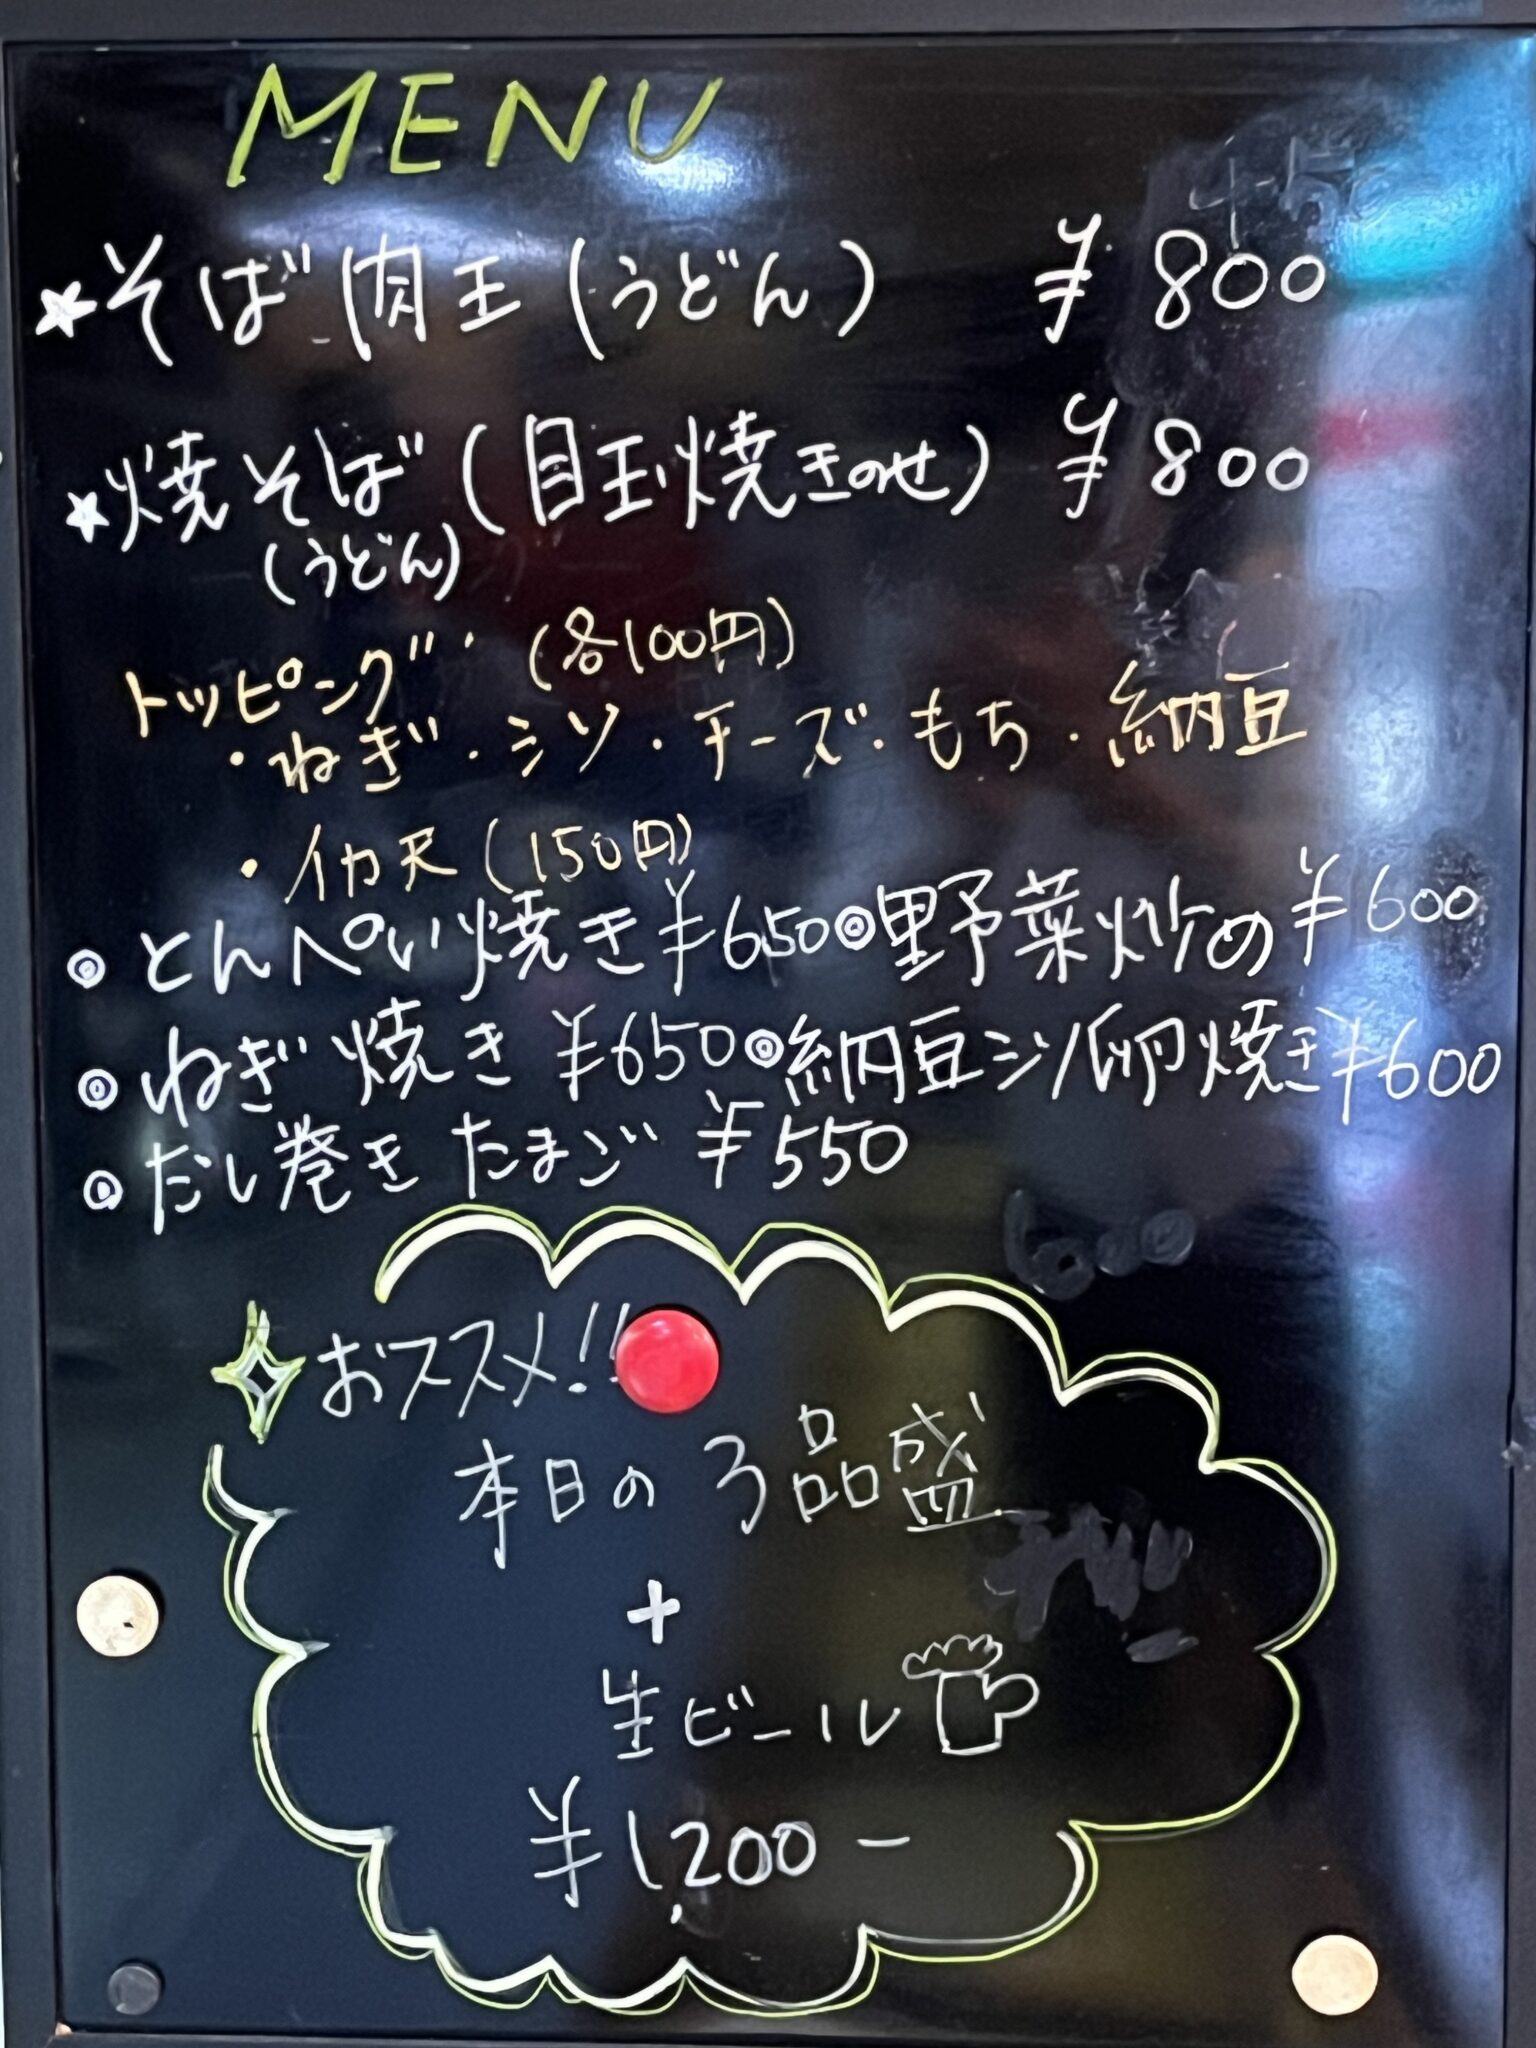 MENU
★そば肉玉(うどん) ¥800
★焼そば(目玉焼きのせ) ¥800
(うどん)
トッピング (各100円)
・ねぎ・シソ・チーズ・もち・納豆
・イカ天(150円)
◎とんぺい焼き¥650◎野菜炒め¥600
◎ねぎ焼き ¥650◎納豆シソ卵焼き¥600
◎だし巻きたまご ¥550
おススメ!!
本日の3品盛
+
生ビール
¥1,200-